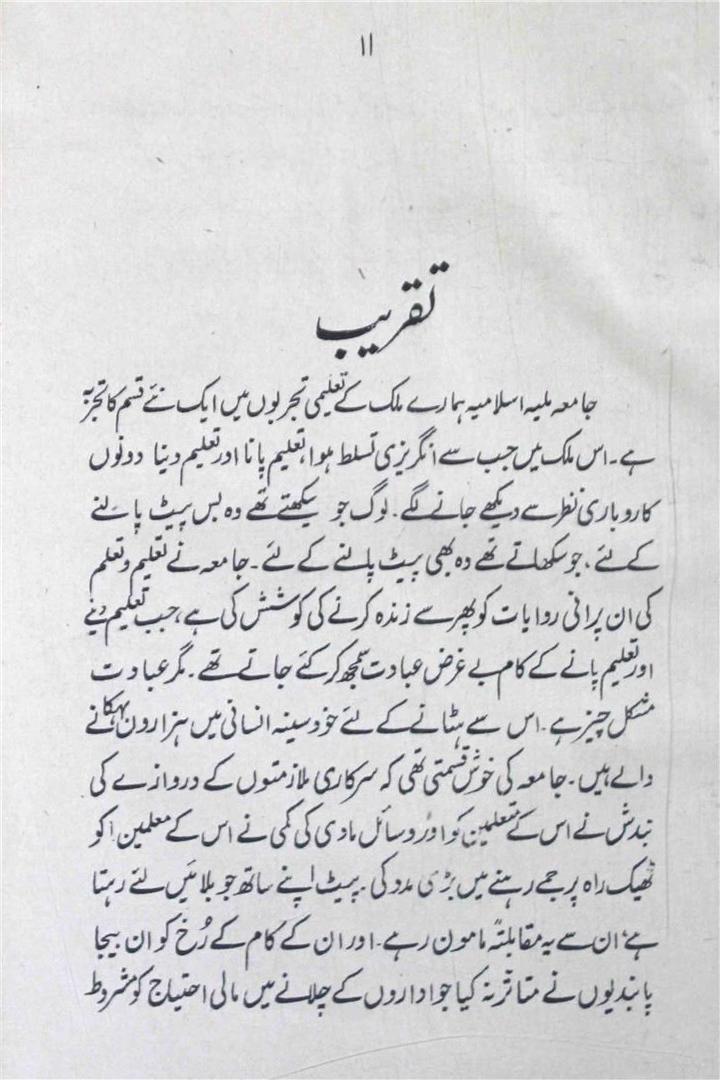 ۱۱
تقریب
جامعہ ملیہ اسلامیہ ہمارے ملک کے تعلیمی تجربوں میں ایک نئے قسم کا تجربہ
ہے۔ اس ملک میں جب سے انگریزی تسلط ہوا، تعلیم پانا اور تعلیم دینا دونوں
کاروباری نظر سے دیکھے جانے لگے۔ لوگ جو سیکھتے تھے وہ بس پیٹ پالنے
کے لئے، جو سکھلاتے تھے وہ بھی پیٹ پالنے کے لئے۔ جامعہ نے تعلیم و تعلم
کی ان پرانی روایات کو پھر سے زندہ کرنے کی کوشش کی ہے، جب تعلیم دینے
اور تعلیم پانے کے کام بے غرض عبادت سمجھ کر کئے جاتے تھے۔ مگر عبادت
مشکل چیز ہے۔ اس سے ہٹانے کے لئے خود سینہ انسانی میں ہزاروں بہکانے
والے ہیں۔ جامعہ کی خوش قسمتی تھی کہ سرکاری ملازمتوں کے دروازے کی
بندش نے اس کے متعلمین کو اور وسائل مادی کی کمی نے اس کے معلمین کو
ٹھیک راہ پر جمے رہنے میں بڑی مدد کی۔ پیٹ اپنے ساتھ جو بلائیں لئے رہتا
ہے، ان سے یہ مقابلتہً مامون رہے۔ اور ان کے کام کے رُخ کو ان بیجا
پابندیوں نے متاثر نہ کیا جو اداروں کے چلانے میں مالی احتیاج کو مشروط